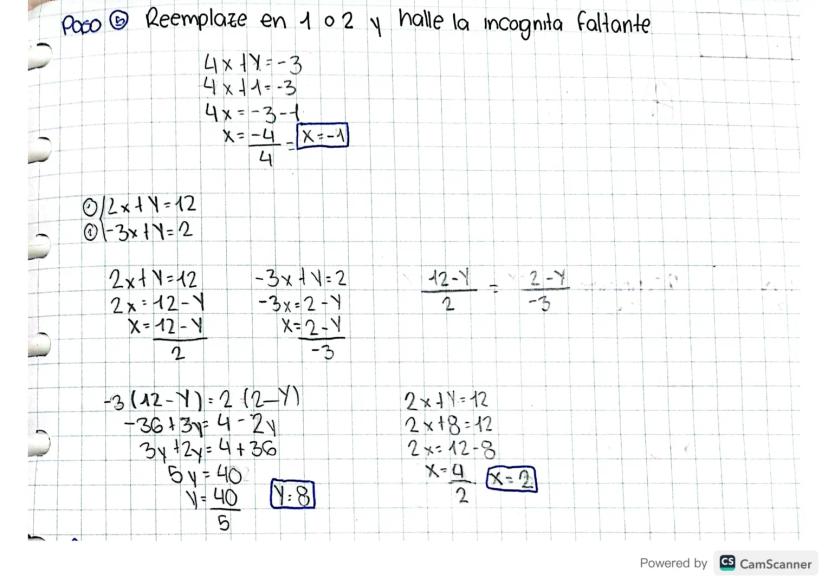 Paso ⑥ Reemplaze en 1 o 2 y halle la incognita faltante
4x+Y=-3
4x+1=-3
4x=-3-1
x=-4/4=x=-1
① 2x+Y=12
① -3x+Y=2
2x+Y=12
2x=12-Y
x=12-Y/2
-3x+Y=2
-3x=2-Y
x=2-Y/-3
12-Y/2 = 2-Y/-3
-3(12-Y)=2(2-Y)
-36+3y=4-2y
3y+2y=4+36
5y=40
y=40/5 Y=8
2x+Y=12
2x+8=12
2x=12-8
x=4/2 x=2
Powered by CS CamScanner